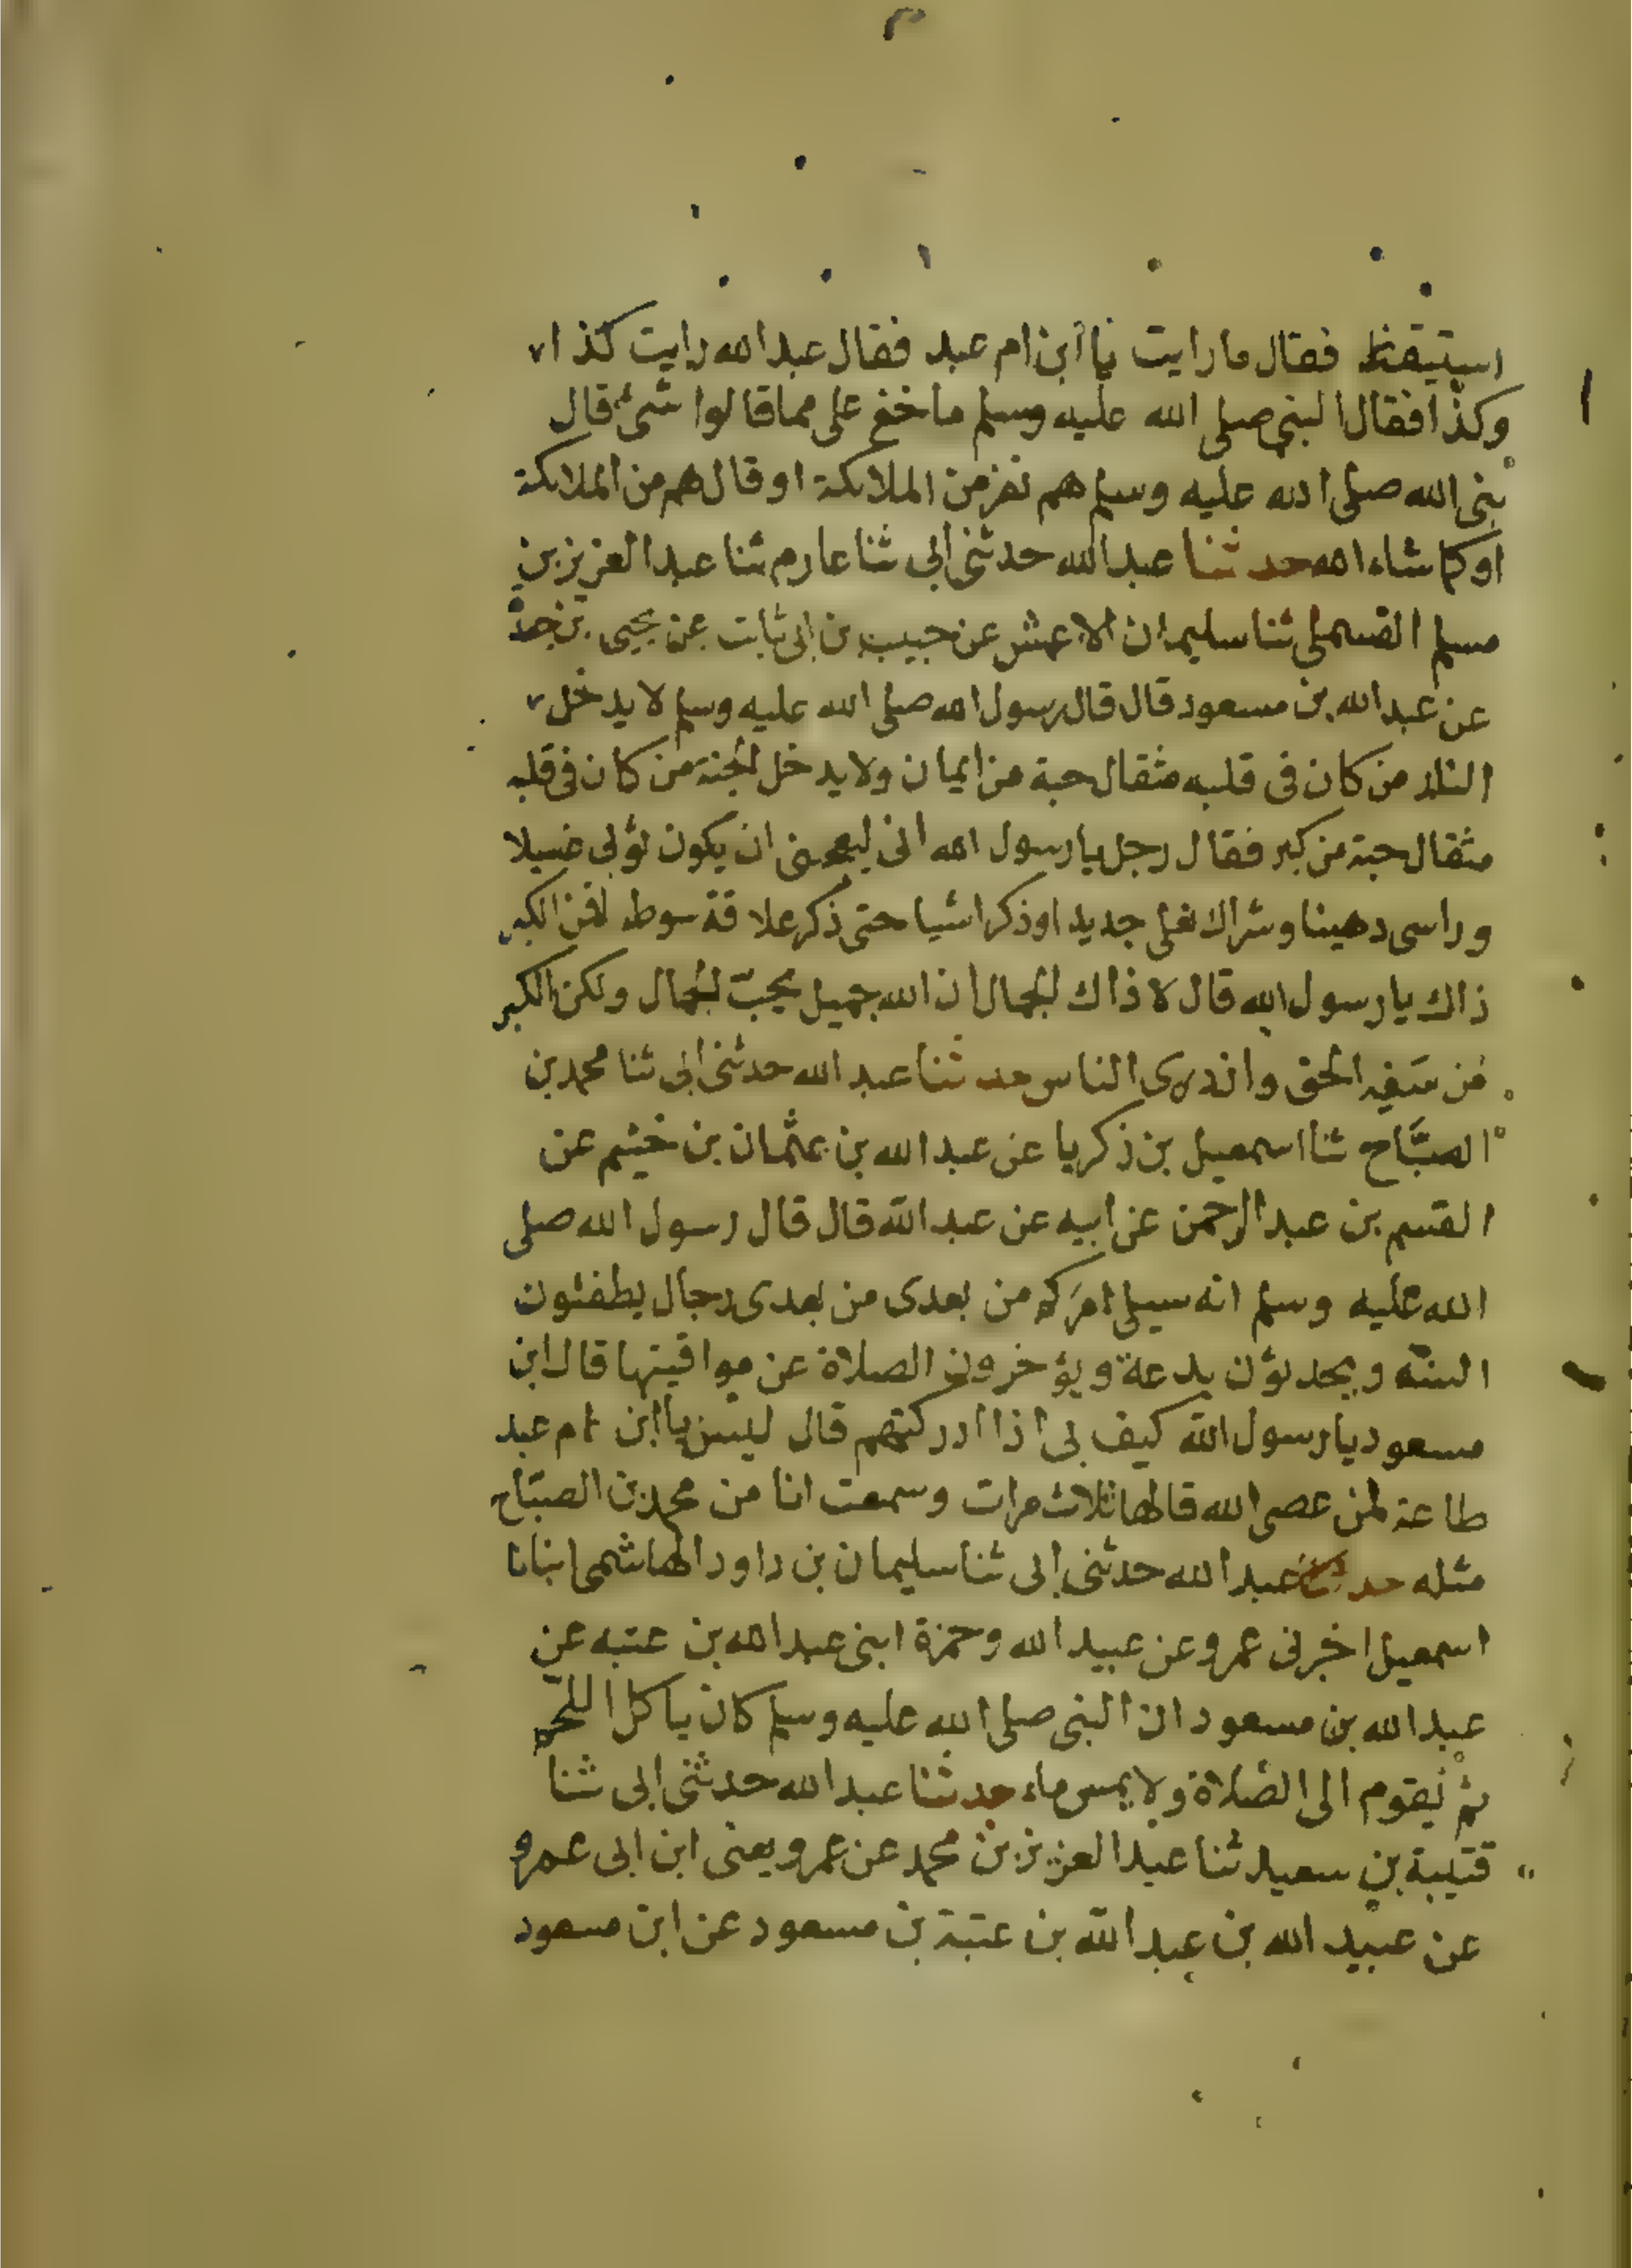 استيقظ فقال ما رايت يا ابن ام عبد فقال عبد الله رايت كذا
وكذا فقال النبي صلى الله عليه وسلم ما خفى على مما قالوا شئ قال
نبى الله صلى الله عليه وسلم هم نفر من الملائكة او قال هم من الملائكة
او كما شاء الله حدثنا عبد الله حدثنى ابى ثنا عارم ثنا عبد العزيز بن
مسلم القسملى ثنا سليمان الاعمش عن حبيب بن ابى ثابت عن يحيى بن جعدة
عن عبد الله بن مسعود قال قال رسول الله صلى الله عليه وسلم لا يدخل
النار من كان فى قلبه مثقال حبة من ايمان ولا يدخل الجنة من كان فى قلبه
مثقال حبة من كبر فقال رجل يا رسول الله انى ليعجبنى ان يكون ثوبى غسيلا
وراسى دهينا وشراك نعلى جديدا وذكر اشيا حتى ذكر علاقة سوطه افمن الكبر
ذاك يا رسول الله قال لا ذاك الجمال ان الله جميل يحبّ الجمال ولكن الكبر
من سَفِه الحق وازدرى الناس حدثنا عبد الله حدثنى ابى ثنا محمد بن
الصبَّاح ثنا اسمعيل بن زكريا عن عبد الله بن عثمان بن خثيم عن
القسم بن عبد الرحمن عن ابيه عن عبد الله قال قال رسول الله صلى
الله عليه وسلم انه سيلى امركم من بعدى من بعدى رجال يطفئون
السنّه ويحدثون بدعة ويؤخرون الصلاة عن مواقيتها قال ابن
مسعود يا رسول الله كيف بى اذا ادركتهم قال ليس يا ابن ام عبد
طاعة لمن عصى الله قالها ثلاث مرات وسمعت انا من محمد بن الصبّاح
مثله حدثنا عبد الله حدثنى ابى ثنا سليمان بن داود الهاشمى انبانا
اسمعيل اخبرنى عمرو عن عبيد الله وحمزة ابنى عبد الله بن عتبه عن
عبد الله بن مسعود ان النبى صلى الله عليه وسلم كان ياكل اللحم
ثم يقوم الى الصّلاة ولا يمس ماء حدثنا عبد الله حدثنى ابى ثنا
قتيبة بن سعيد ثنا عبد العزيز بن محمد عن عمرو يعنى ابن ابى عمرو
عن عبيد الله بن عبد الله بن عتبة بن مسعود عن ابن مسعود